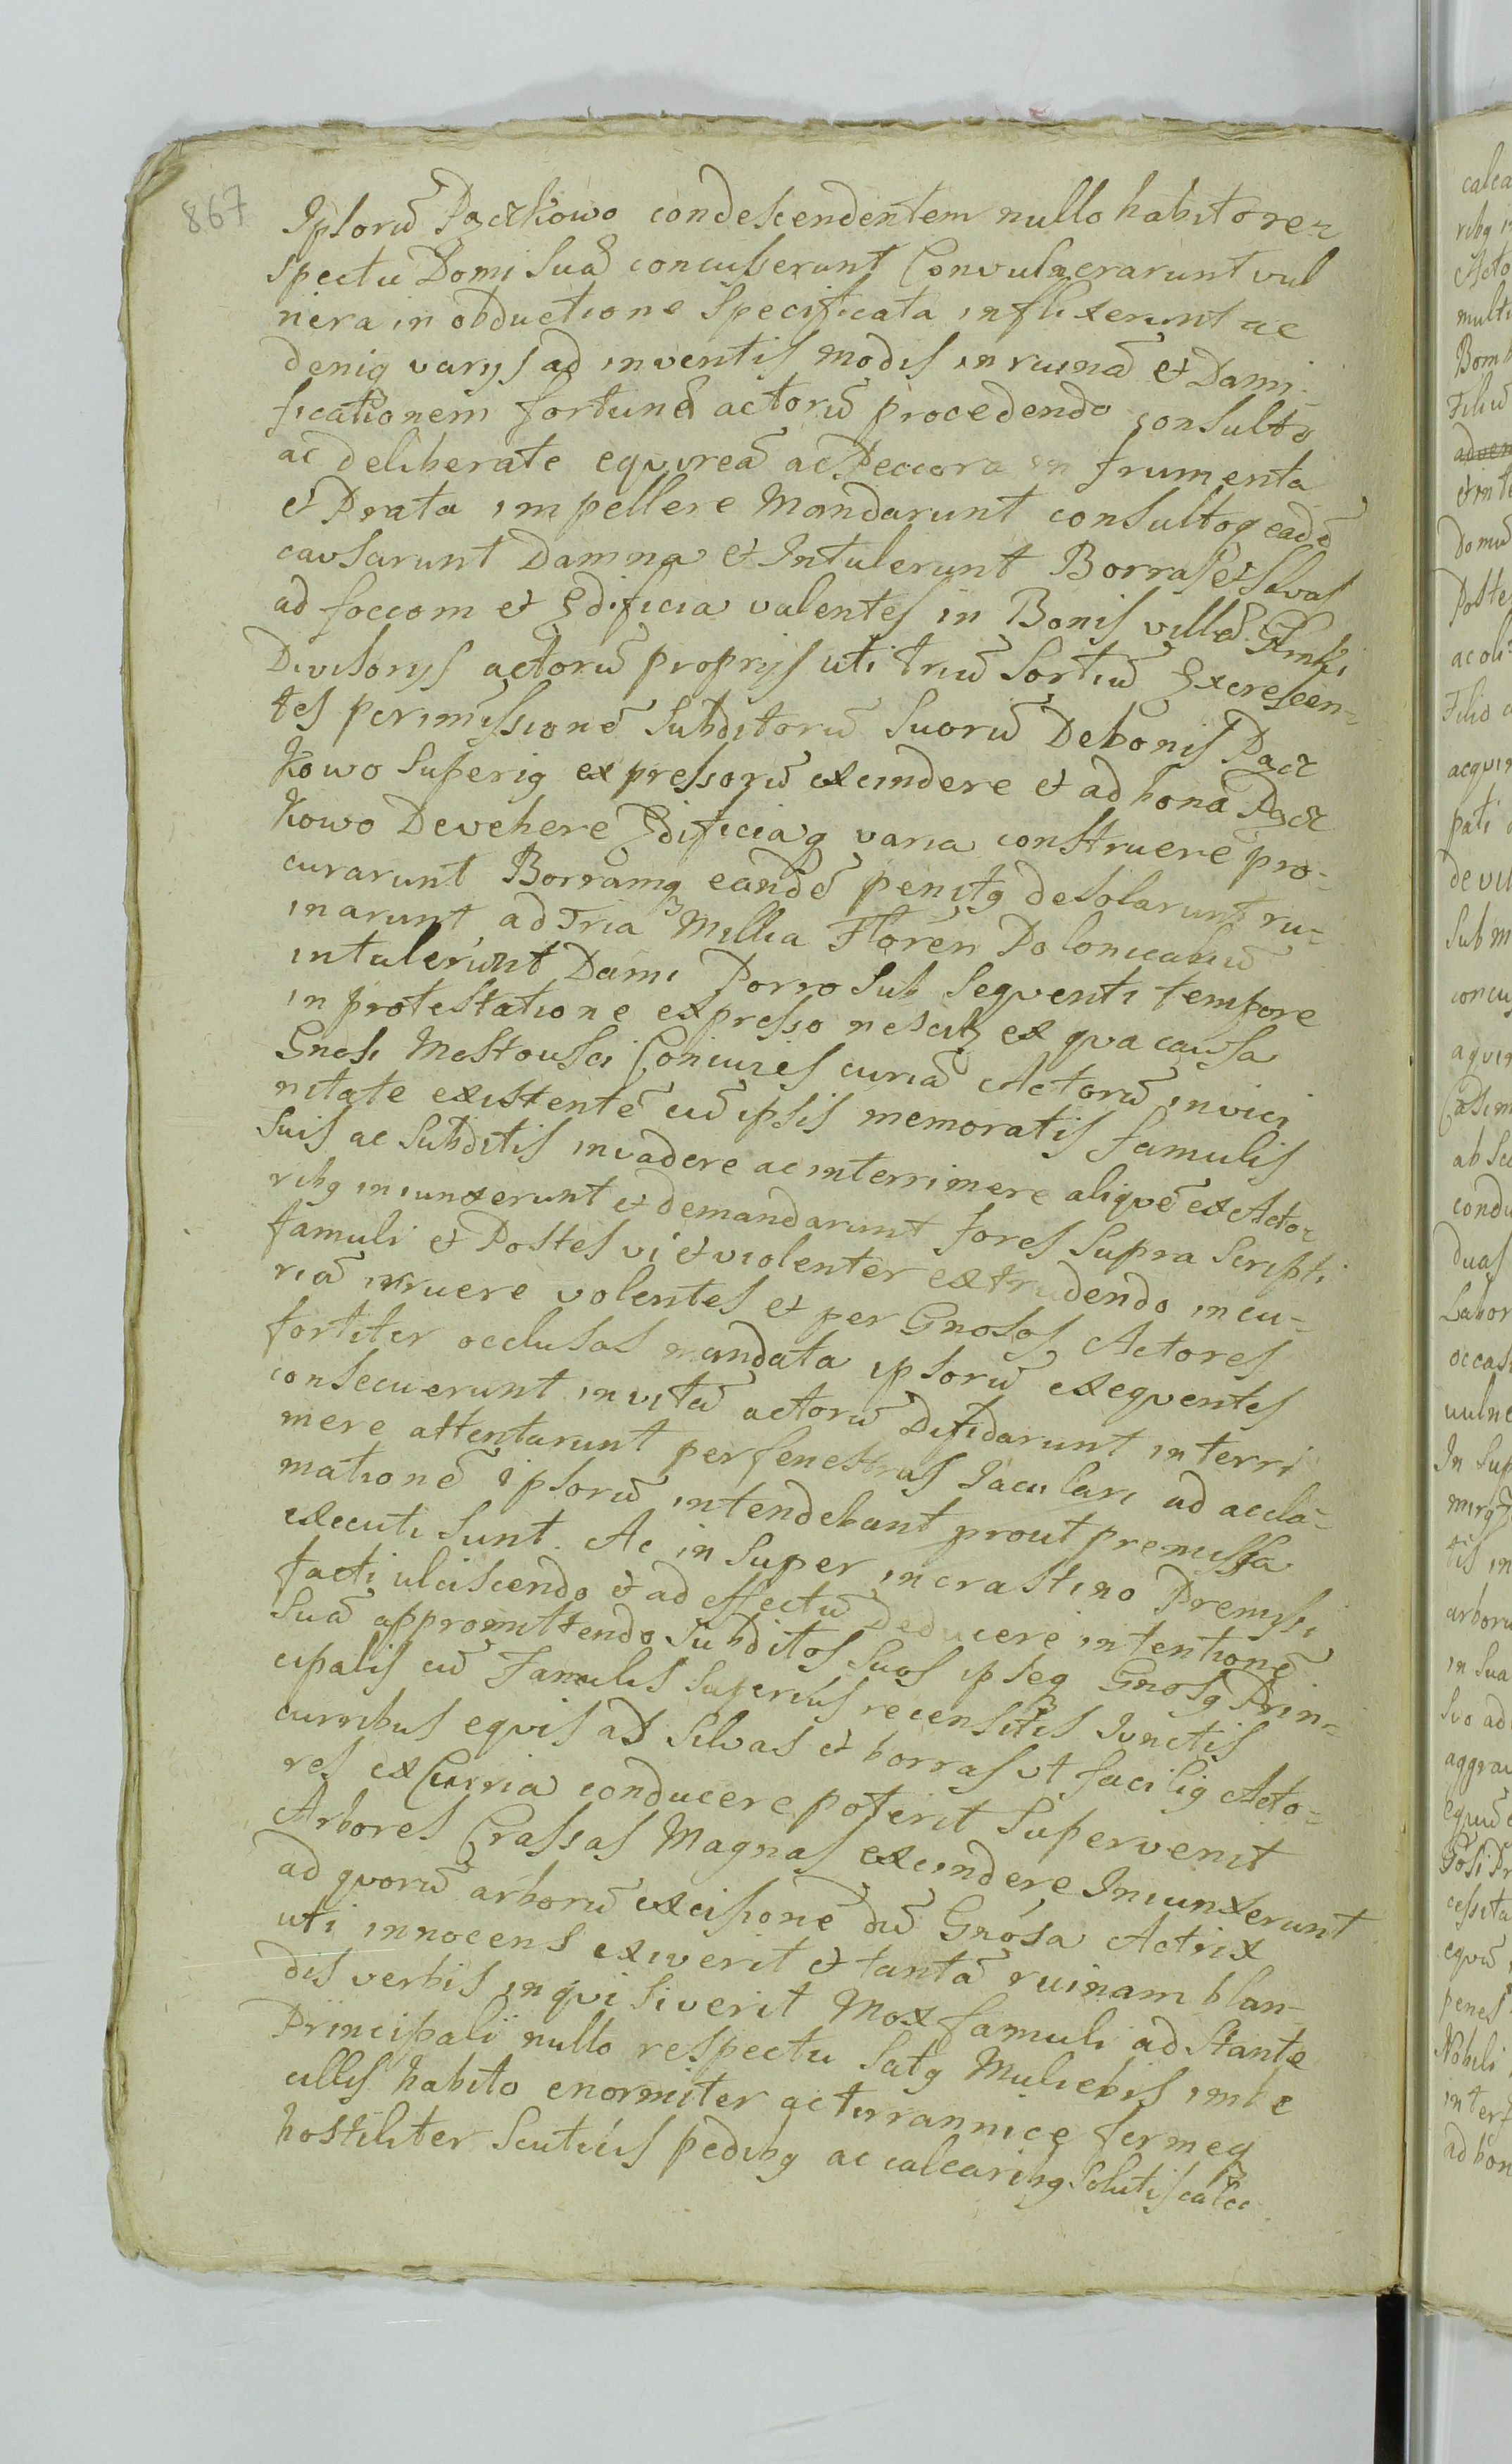 867
Ipsorū Pączkowo condescendentem nullo habito re=
spectu Domi Suæ concusserunt Convulnerarunt vul
nera in obductione Specificata inflixerunt ac
deniq varijs ad inventis modis in ruinā et Dami-
ficationem fortunæ actorū procedendo consulto
ac deliberate equireā ac Peccora in frumenta
et Prata impellere Mandarunt consultoq eadē
causarunt Damna et Intulerunt Borras et Silvas
ad foccom et Ædificia valentes in Bonis villæ
Divisorijs actorū proprijs uti triū Sortiū Excrescen-
tes per imissionē Subditorū Suorū De bonis Pącz
kowo Superiq expressorū excindere et ad bona Pącz
kowo Devehere Ædificiaq varia construere pro-
curarunt Borramq eandē penitq desolarunt ru-
inarunt ad Tria Millia Floren Polonicaliū
intulerunt Damı Porro Sub sequenti tempore
in protestatione expresso nescitz ex qua causa
Gnosi Mostowsci Coniuies curiā Actorū in vici
nitate existentē cū ipsis memoratis famulis
Suis ac Subditis invadere ac interrimere aliquē ex Acto-
ribq iniunxerunt et demandarunt fores Supra Scripti
famuli et Postes vi et violenter extrudendo in cu-
riā irruere volentes et per Gnosos Actores
fortiter occlusas mandata ipsorū exequentes
consecuerunt in vitā actorū Difidarunt interri
mere attentarunt per fenestras Iaculari ad accla-
mationē ipsorū intendebant prout premissa
executi Sunt. Ac in Super incrastino Premissi
facti ulciscendo et ad effectū deducere intentionē
Suā appromittendo Subditos Suos ipseq Gnosq Prin=
cipalis cū Famulis Superius recensitis Iunctis
curribus equis ad Silvas et borras ut faciliq Acto-
res ex Curia conducere poterit Supervenit
Arbores Crassas Magnas excindere Iniunxerunt
ad quorū arborū excisionē dū Gnosa Actrix
uti innocens exiverit et tantā ruinam blan-
dis verbis inquisiverit Mox famuli ad Stante
Principali nullo respectu Satq Muliebris imbe
cillis habito enormiter ac tirrannice fermeq
hostiliter Scuticis pedibq ac calcaribq Solutis calca